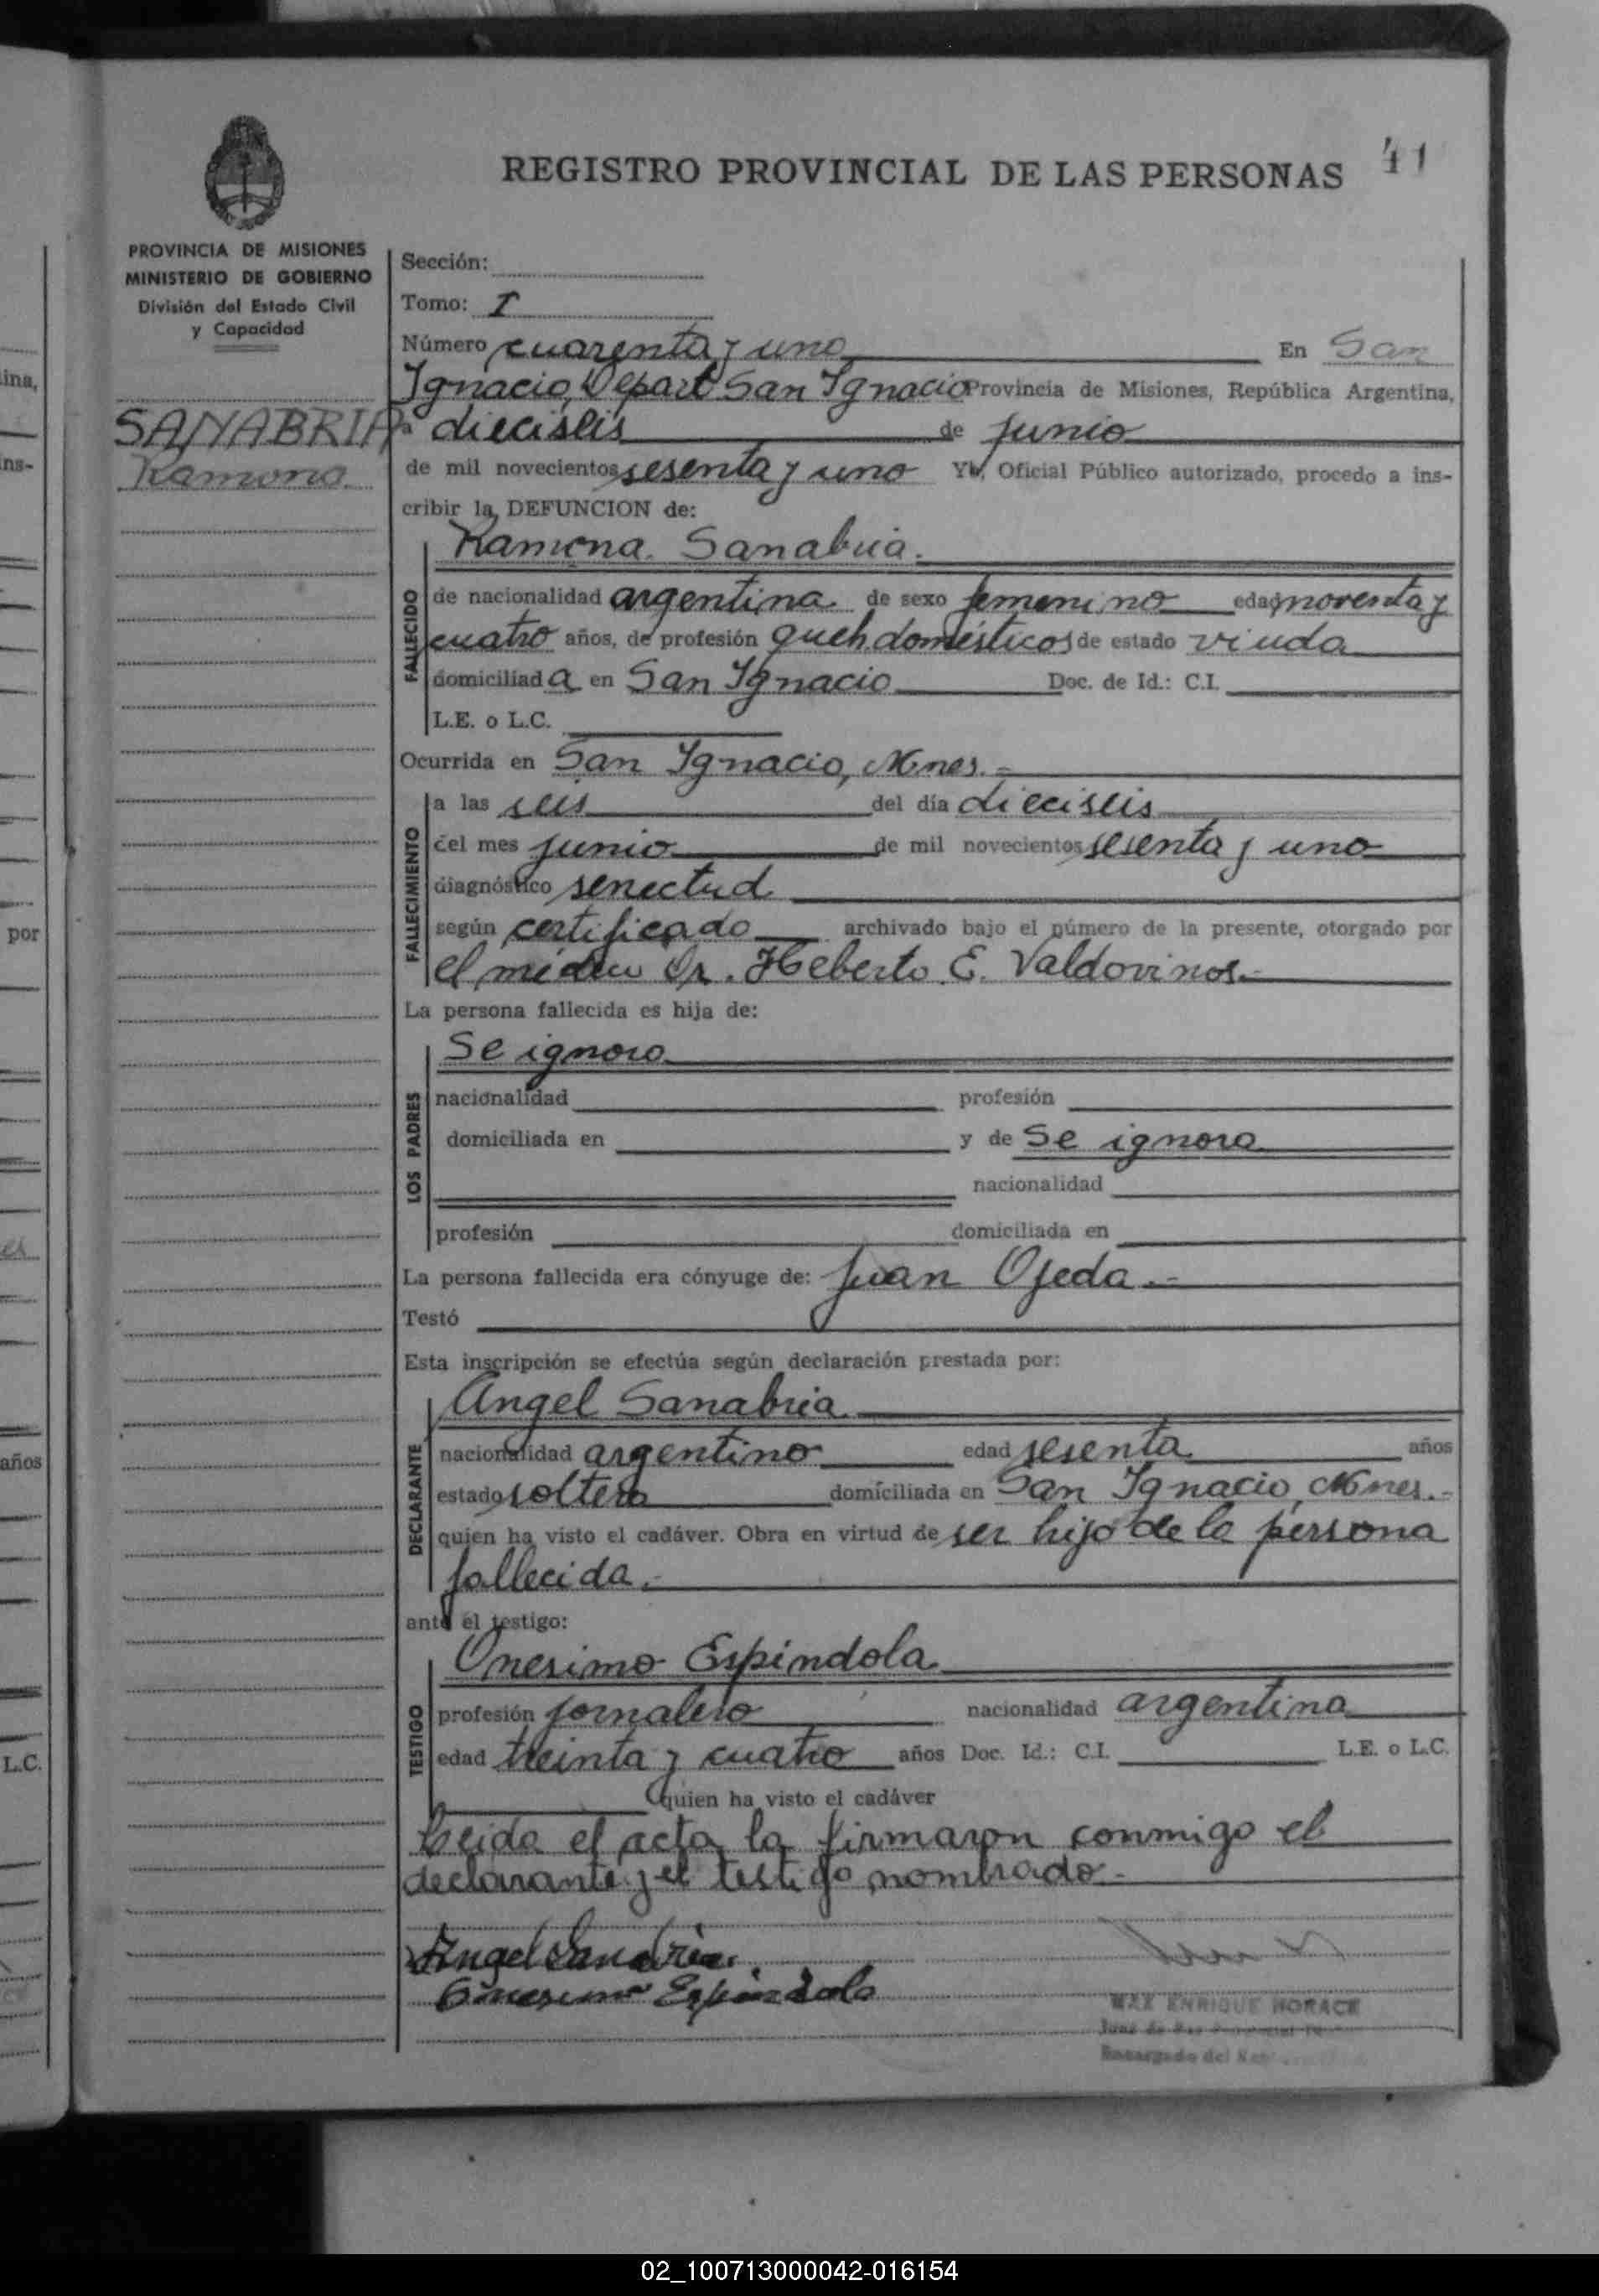 41
REGISTRO PROVINCIAL DE LAS PERSONAS
PROVINCIA DE MISIONES
MINISTERIO DE GOBIERNO
División del Estado Civil
y Capacidad
SANABRIA
Ramona.
Sección:
Tomo: I
Número cuarenta y uno En San
Ignacio, Depart San Ignacio Provincia de Misiones, República Argentina,
a dieciseis de junio
de mil novecientos sesenta y uno Yo, Oficial Público autorizado, procedo a ins-
cribir la DEFUNCION de:
Ramona. Sanabria.
FALLECIDO
de nacionalidad argentina de sexo femenino edad noventa y
cuatro años, de profesión queh. domésticos de estado viuda
domiciliad a en San Ignacio Doc. de Id.: C.I.
L.E. o L.C.
Ocurrida en San Ignacio, Mnes.-
FALLECIMIENTO
a las seis del día dieciseis
del mes junio de mil novecientos sesenta y uno
diagnóstico senectud
según certificado archivado bajo el número de la presente, otorgado por
el médico Dr. Heberto E. Valdovinos.-
La persona fallecida es hija de:
LOS PADRES
Se ignora
nacionalidad profesión
domiciliada en y de Se ignora
nacionalidad
profesión domiciliada en
La persona fallecida era cónyuge de: Juan Ojeda.-
Testó
Esta inscripción se efectúa según declaración prestada por:
DECLARANTE
Angel Sanabria
nacionalidad argentino edad sesenta años
estado soltero domiciliada en San Ignacio, Mnes.-
quien ha visto el cadáver. Obra en virtud de ser hijo de la persona
fallecida.-
ante el testigo:
TESTIGO
Onesimo Espindola
profesión jornalero nacionalidad argentina
edad treinta y cuatro años Doc. Id.: C.I. L.E. o L.C.
quien ha visto el cadáver
Leida el acta la firmaron conmigo el
declarante y el testigo nombrado.-
Angel Sanabria
Onesimo Espindola
MAX ENRIQUE HORACK
Juez de Paz
Encargado del
ina,
ins-
por
años
L.C.
02_100713000042-016154